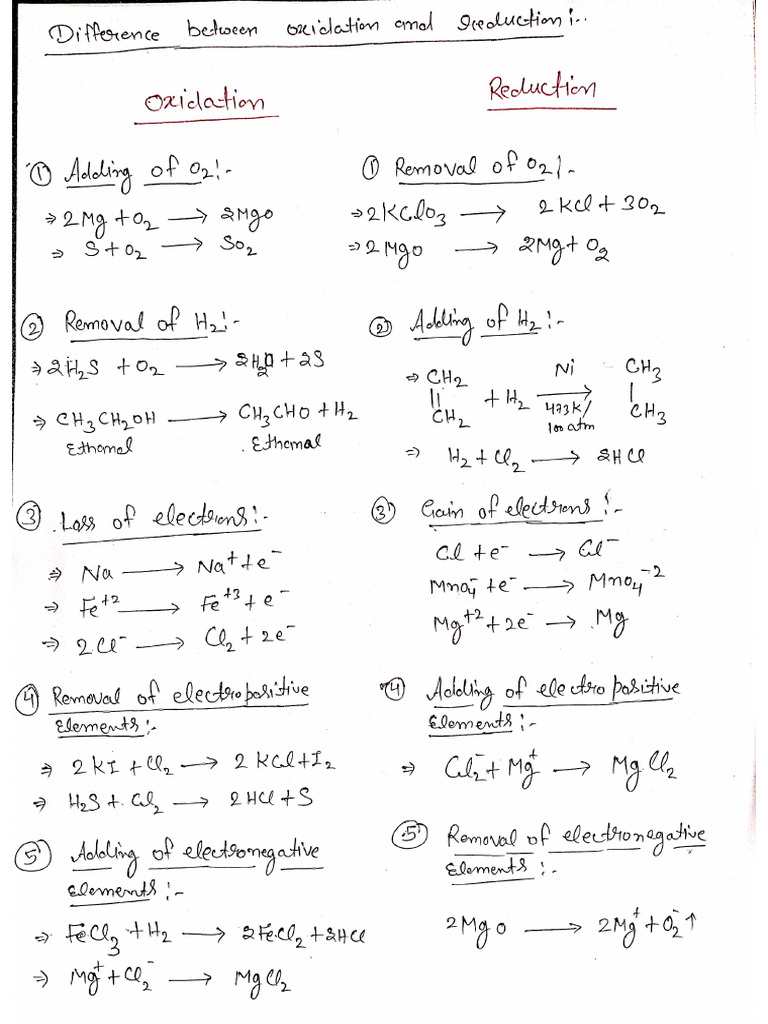 Difference between oxidation and Reduction:-
Oxidation
① Adding of O₂:-
⇒ 2Mg + O₂ ⟶ 2MgO
⇒ S + O₂ ⟶ SO₂
② Removal of H₂:-
⇒ 2H₂S + O₂ ⟶ 2H₂O + 2S
⇒ CH₃CH₂OH ⟶ CH₃CHO + H₂
Ethanol Ethanal
③ Loss of electrons:-
⇒ Na ⟶ Na⁺ + e⁻
⇒ Fe⁺² ⟶ Fe⁺³ + e⁻
⇒ 2Cl⁻ ⟶ Cl₂ + 2e⁻
④ Removal of electropositive
Elements:-
⇒ 2KI + Cl₂ ⟶ 2KCl + I₂
⇒ H₂S + Cl₂ ⟶ 2HCl + S
⑤ Adding of electronegative
Elements:-
⇒ FeCl₃ + H₂ ⟶ 2FeCl₂ + 2HCl
⇒ Mg⁺ + Cl₂⁻ ⟶ MgCl₂
Reduction
① Removal of O₂:-
⇒ 2KClO₃ ⟶ 2KCl + 3O₂
⇒ 2MgO ⟶ 2Mg + O₂
② Adding of H₂:-
⇒ CH₂ Ni CH₃
|| + H₂ ⟶ |
CH₂ 473K/ CH₃
100atm
⇒ H₂ + Cl₂ ⟶ 2HCl
③ Gain of electrons:-
Cl + e⁻ ⟶ Cl⁻
MnO₄⁻ + e⁻ ⟶ MnO₄⁻²
Mg⁺² + 2e⁻ ⟶ Mg
④ Adding of electropositive
Elements:-
⇒ Cl₂⁻ + Mg⁺ ⟶ MgCl₂
⑤ Removal of electronegative
Elements:-
2MgO ⟶ 2Mg⁺ + O₂⁻↑